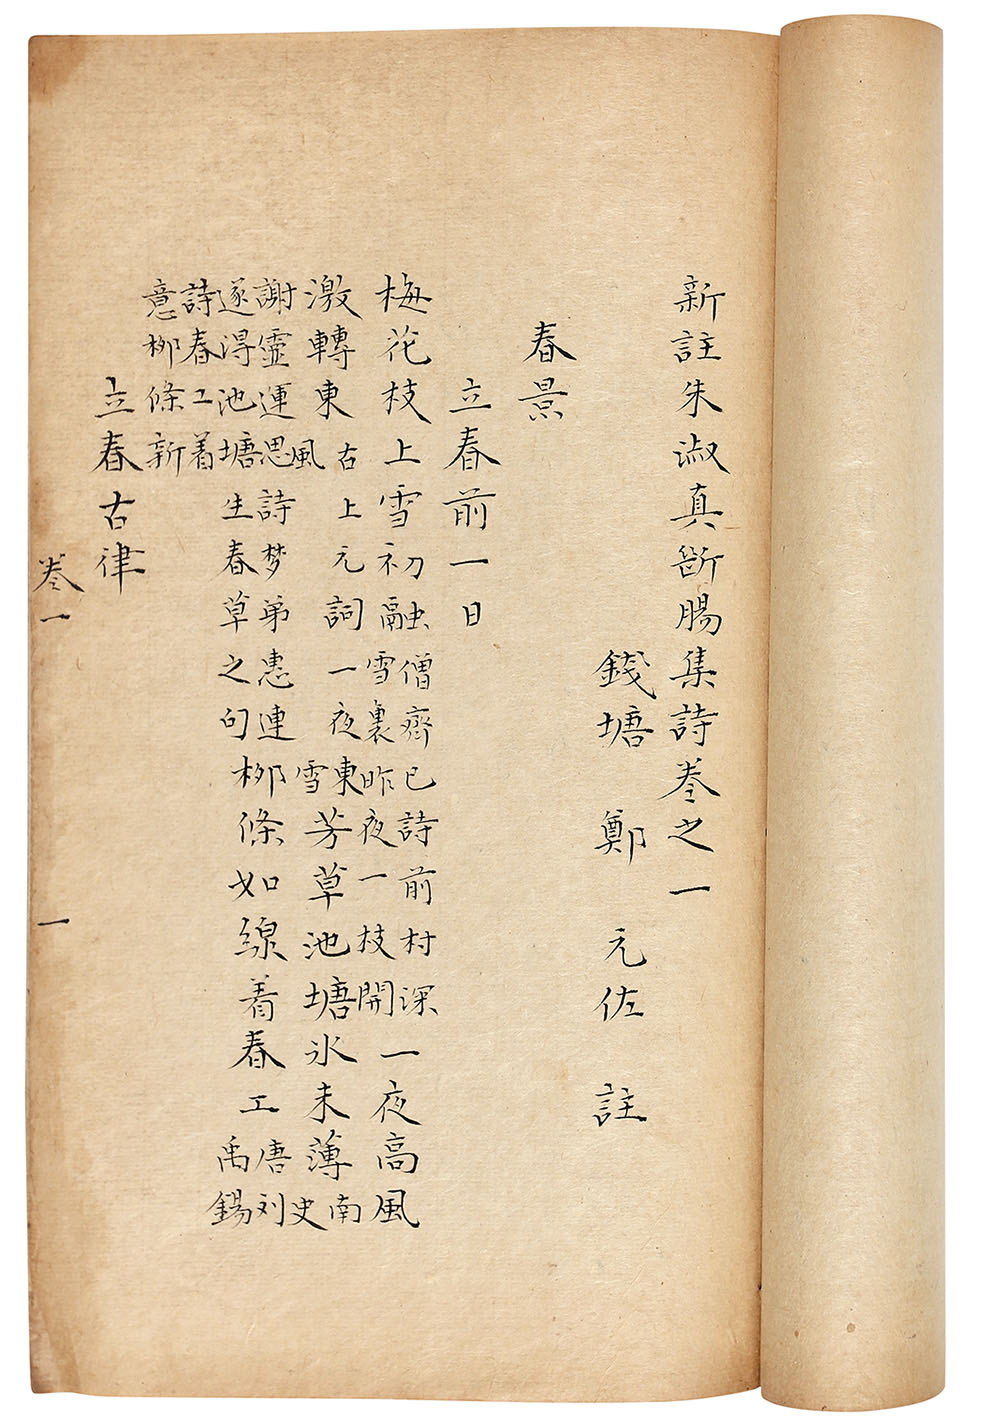 新註朱淑真断腸集詩卷之一
錢塘 鄭 元佐 註
春景
立春前一日
梅花枝上雪初融僧齊已詩前村深雪裏昨夜一枝開一夜高風
激轉東古上元詞一夜東風雪芳草池塘冰未薄南史
謝靈運思詩梦弟惠連遂得池塘生春草之句柳條如線着春工唐刘禹錫
詩春工着意柳條新
立春古律
卷一 一